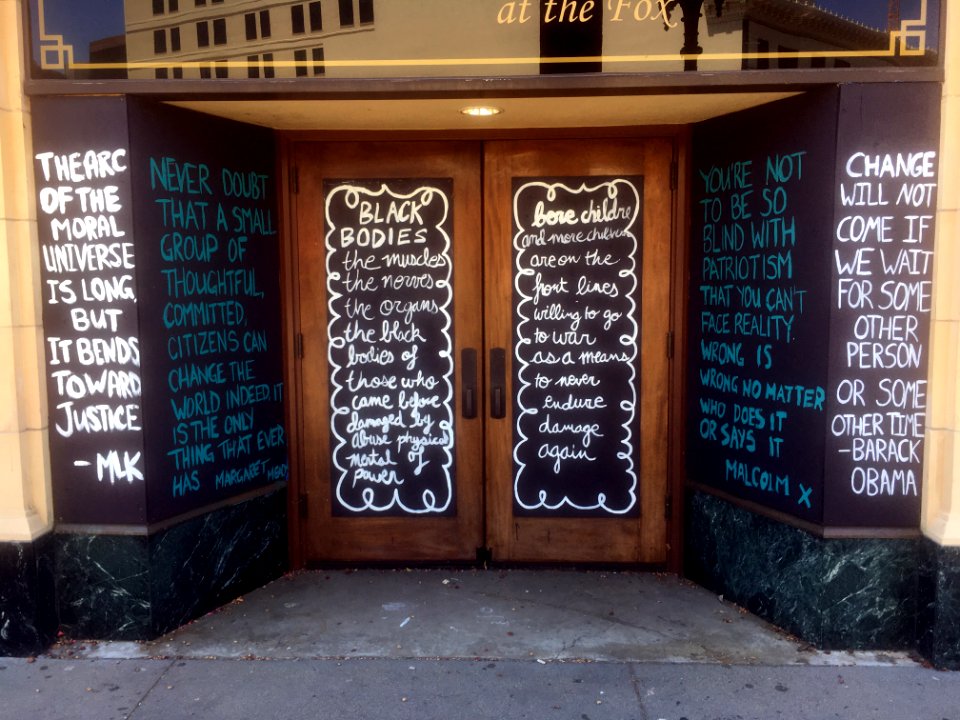 at the Fox
THE ARC
OF THE
MORAL
UNIVERSE
IS LONG,
BUT
IT BENDS
TOWARD
JUSTICE
-MLK
NEVER DOUBT
THAT A SMALL
GROUP OF
THOUGHTFUL,
COMMITTED,
CITIZENS CAN
CHANGE THE
WORLD INDEED IT
IS THE ONLY
THING THAT EVER
HAS MARGARET MEAD
BLACK
BODIES
the muscles
the nerves
the organs
the black
bodies of
those who
came before
damaged by
abuse physical
mental of
power
bore children
and more children
are on the
front lines
willing to go
to war
as a means
to never
endure
damage
again
YOU'RE NOT
TO BE SO
BLIND WITH
PATRIOTISM
THAT YOU CAN'T
FACE REALITY.
WRONG IS
WRONG NO MATTER
WHO DOES IT
OR SAYS IT
MALCOLM X
CHANGE
WILL NOT
COME IF
WE WAIT
FOR SOME
OTHER
PERSON
OR SOME
OTHER TIME
-BARACK
OBAMA